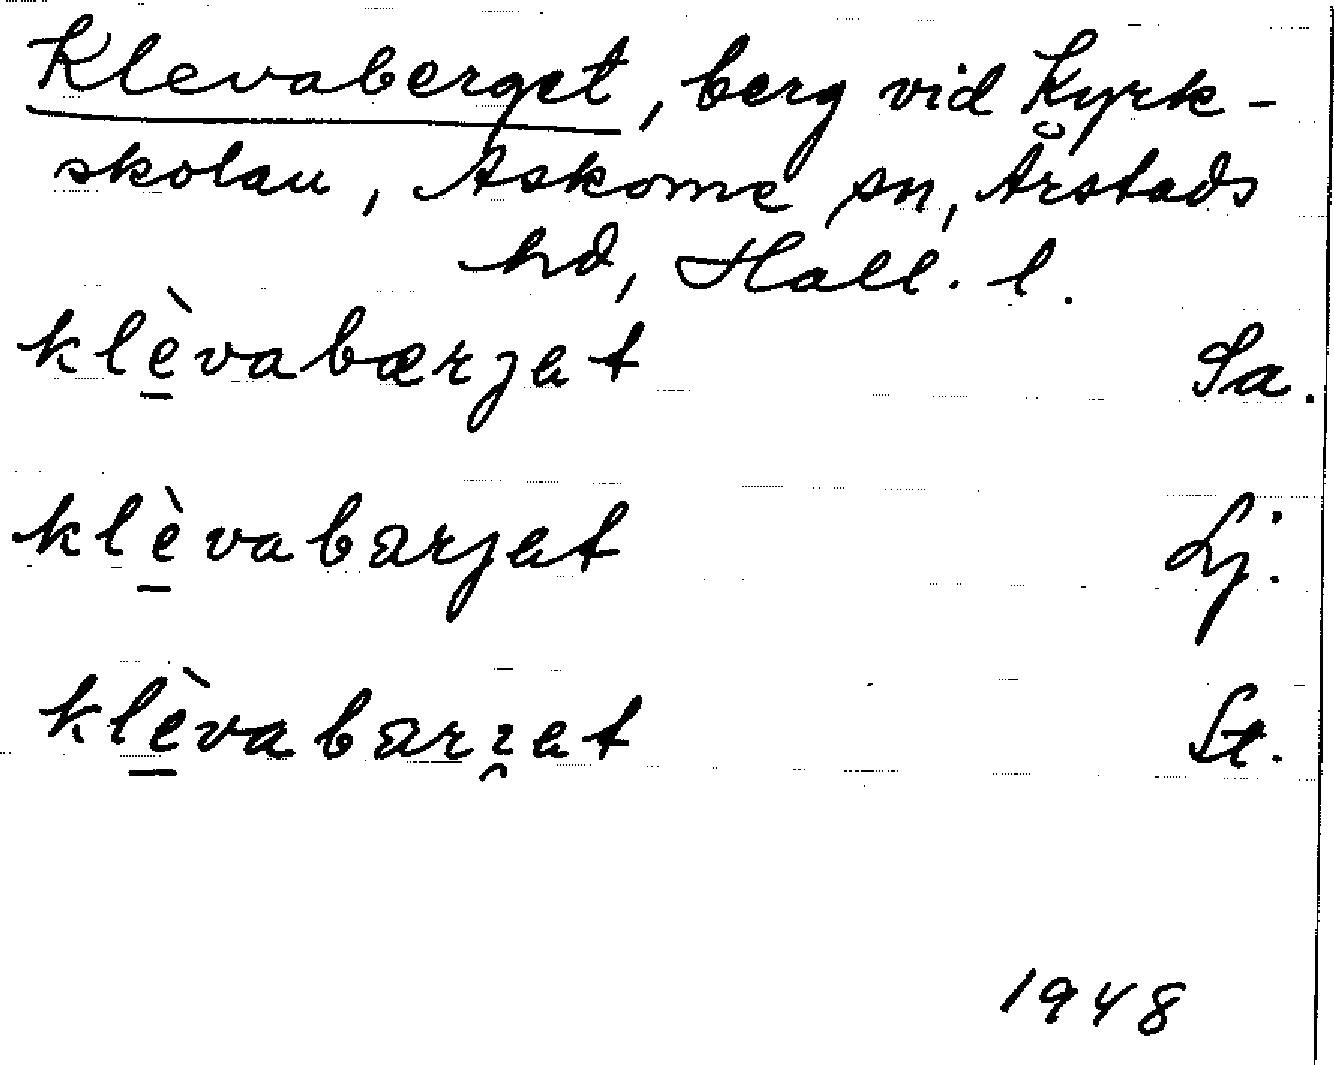 Klevaberget, berg vid Kyrk-
skolan, Askome sn, Årstads
hd, Hall. l.
klèvabærjat Sa.
klèvabarjat Lj.
klèvabarı̯at St.
1948